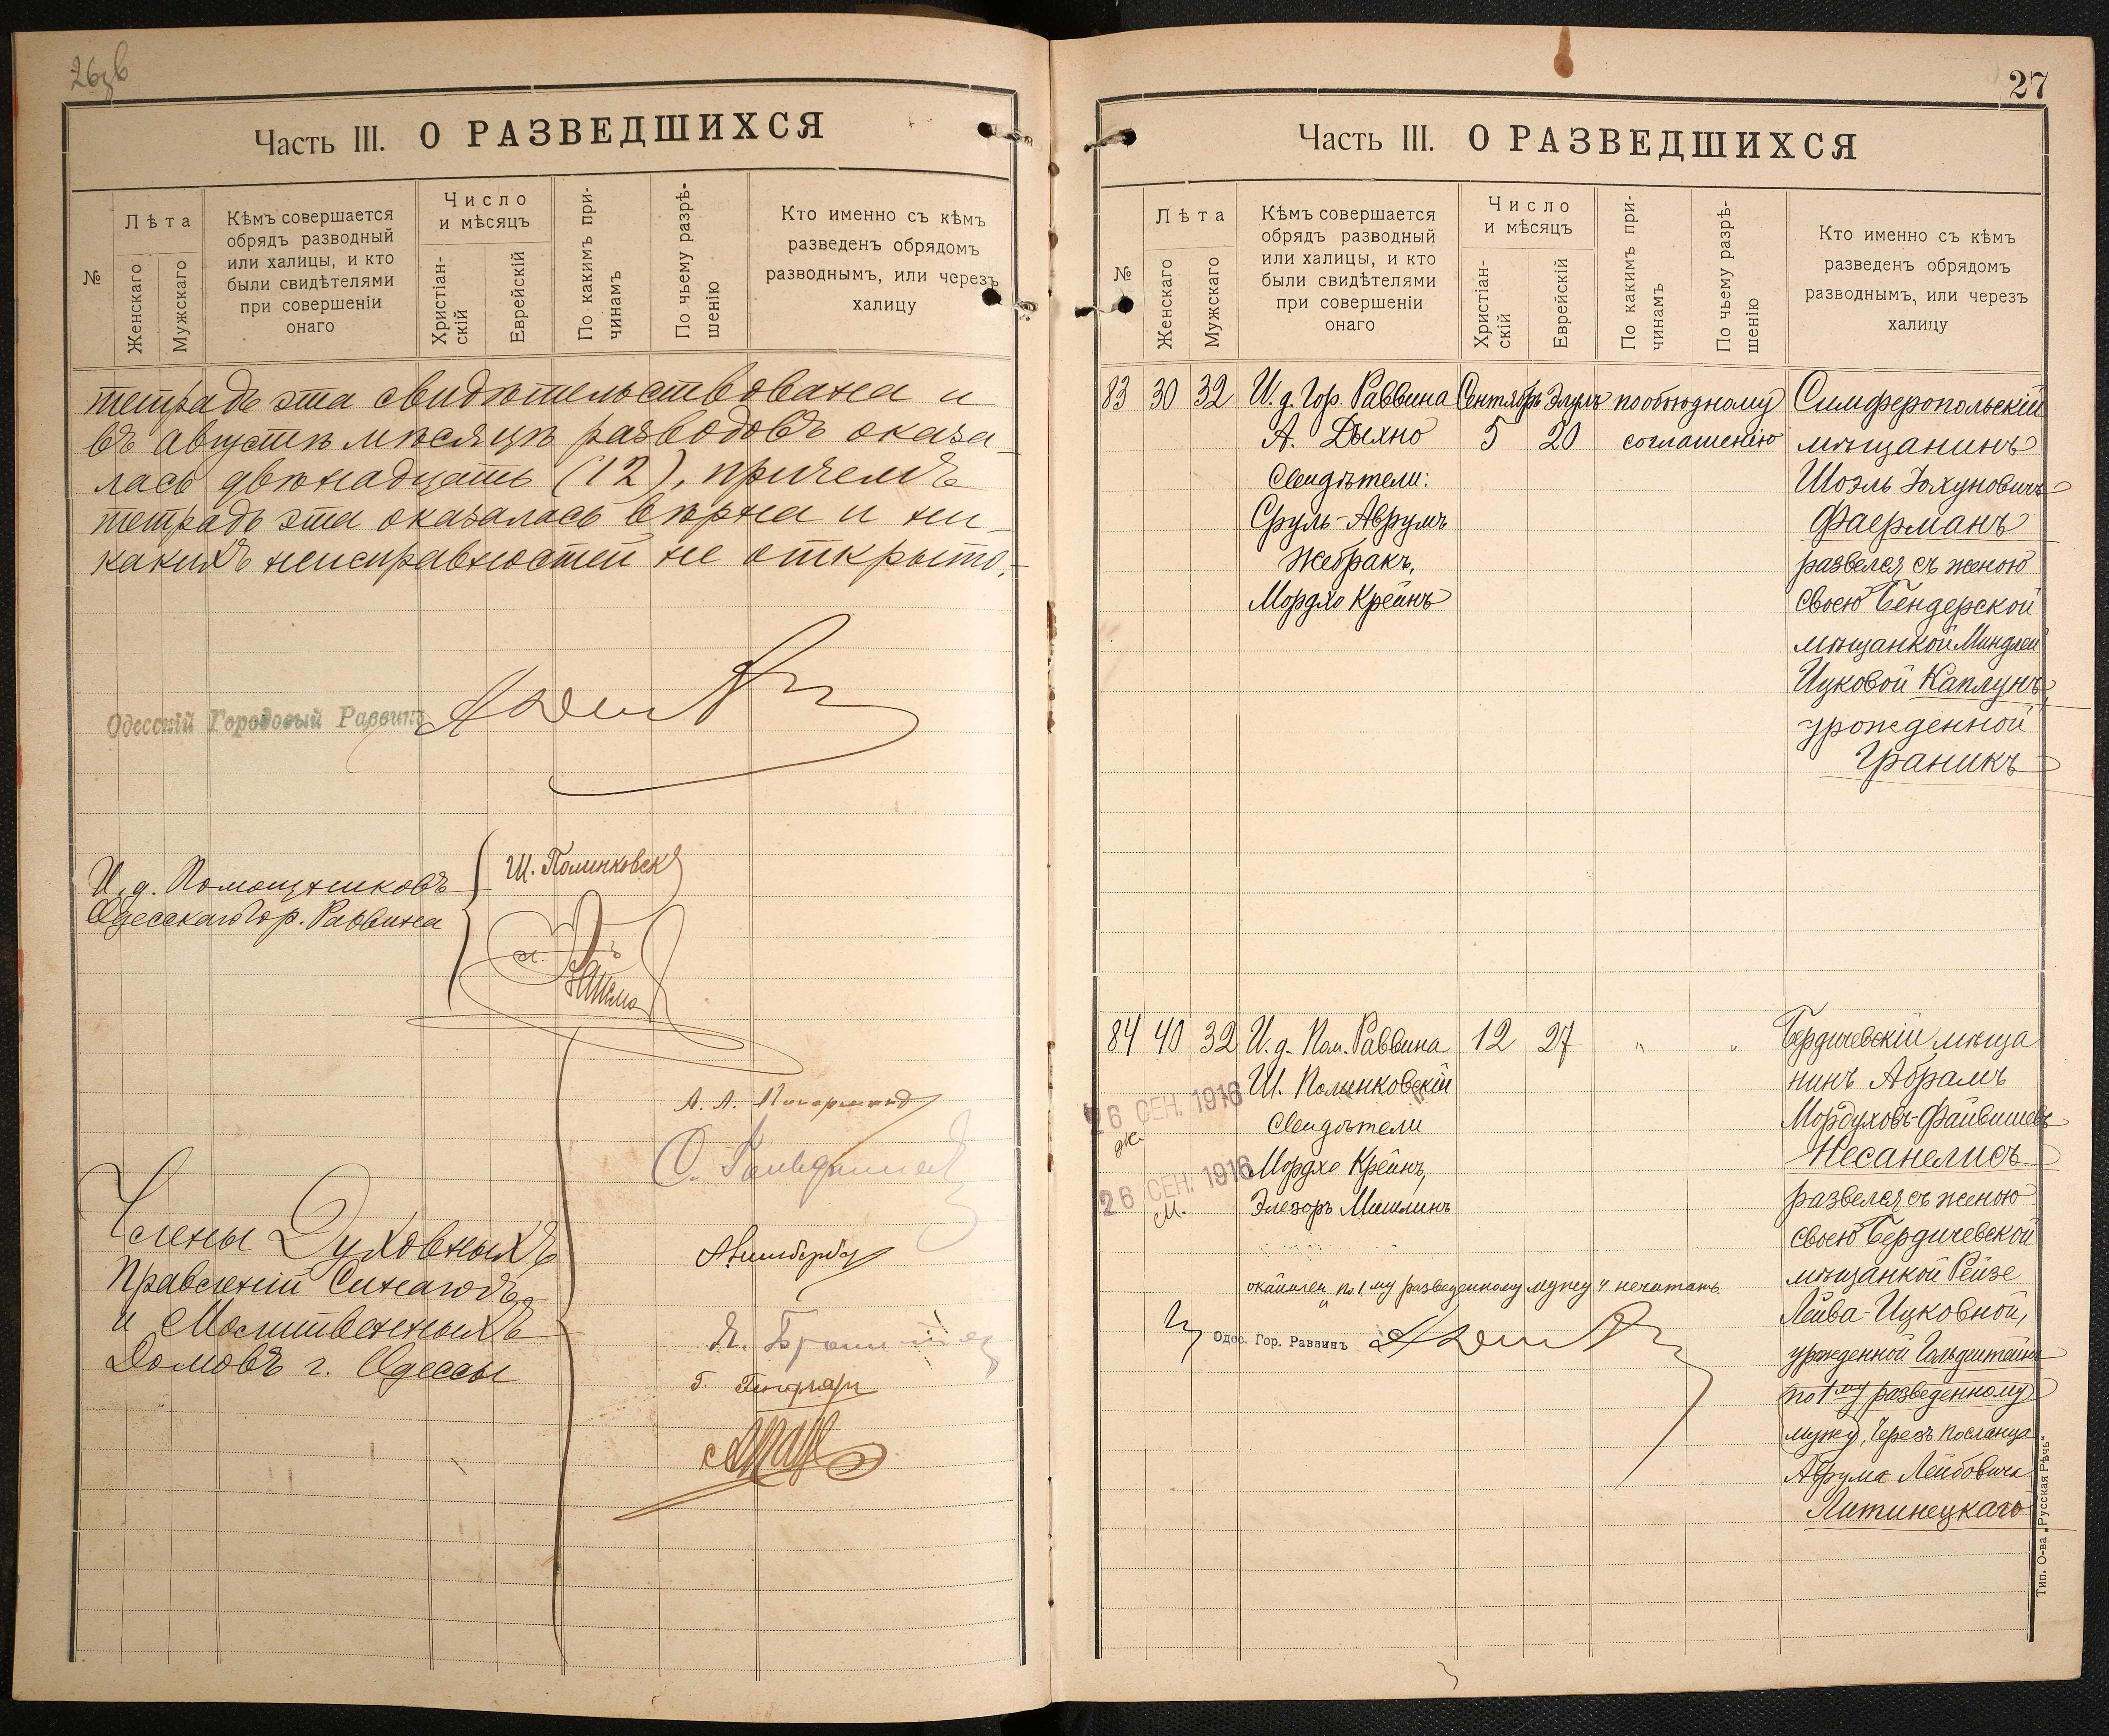 26зв
Часть III. О РАЗВЕДШИХСЯ
№
Лѣта
Женскаго
Мужскаго
Кѣмъ совершается
обрядъ разводный
или халицы, и кто
были свидѣтелями
при совершеніи
онаго
Число
и мѣсяцъ
Христіан-
скій
Еврейскій
По какимъ при-
чинамъ
По чьему разрѣ-
шенію
Кто именно съ кѣмъ
разведенъ обрядомъ
разводнымъ, или через
халицу
тетрадь эта свидѣтельствована и
въ августѣ мѣсяцѣ разводовъ оказа-
лась двѣнадцать (12), причемъ
тетрадь эта оказалась вѣрна и ни-
какихъ неисправностей не открыто.-
Одесскій Городовый Раввинъ
И. д. Помощниковъ
Одесскаго Гор. Раввина
Ш. Полинковск
Члены Духовныхъ
Правленій Синагогъ
и Молитвенныхъ
Домовъ г. Одессы
27
Часть III. О РАЗВЕДШИХСЯ
№
Лѣта
Женскаго
Мужскаго
Кѣмъ совершается
обрядъ разводный
или халицы, и кто
были свидѣтелями
при совершеніи
онаго
Число
и мѣсяцъ
Христіан-
скій
Еврейскій
По какимъ при-
чинамъ
По чьему разрѣ-
шенію
Кто именно съ кѣмъ
разведенъ обрядомъ
разводнымъ, или через
халицу
83 30 32
И. д. Гор. Раввина
А. Дыхно
Свидѣтели:
Сруль-Аврумъ
Жебракъ,
Мордхо Крейнъ
Сентябрь Элулъ
5 20
по обоюдному
соглашенію
Симферопольскій
мѣщанинъ
Шоэль Юхуновичъ
Фаерманъ
развелся съ женою
своею Бендерской
мѣщанкой Миндлей
Ицковой Каплунъ,
урожденной
Граникъ
84 40 32
И. д. Пом. Раввина
Ш. Полинковскій
Свидѣтели
Мордхо Крейнъ,
Элезоръ Мишлинъ
12 27
" "
26 СЕН. 1916
ж.
26 СЕН. 1916
м.
Бердичевскій мѣща
нинъ Абрамъ
Мордуховъ-Файвишевъ
Несанелисъ
развелся съ женою
своею Бердичевской
мѣщанкой Рейзе
Лейва-Ицковной,
урожденной Гольдштейнъ
по 1му разведенному
мужу, Черезъ посланца
Аврума Лейбовича
Литинецкаго
"по 1му разведенному мужу" нечитать.
Одес. Гор. Раввинъ
Тип. О-ва „Русская Рѣчь“